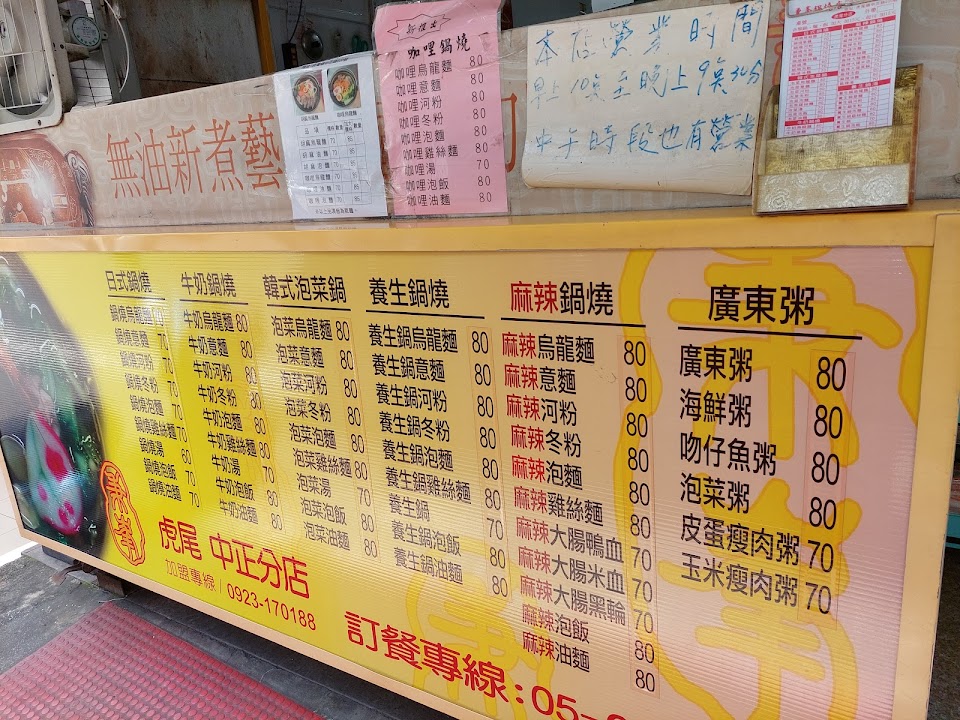 無油新煮藝
新推出
咖哩鍋燒
咖哩烏龍麵 80
咖哩意麵 80
咖哩河粉 80
咖哩冬粉 80
咖哩泡麵 80
咖哩雞絲麵 80
咖哩湯 70
咖哩泡飯 80
咖哩油麵 80
本店營業時間
早上10點至晚上9點30分
中午時段也有營業
日式鍋燒
鍋燒烏龍麵 70
鍋燒意麵 70
鍋燒河粉 70
鍋燒冬粉 70
鍋燒泡麵 70
鍋燒雞絲麵 70
鍋燒湯 60
鍋燒泡飯 70
鍋燒油麵 70
牛奶鍋燒
牛奶烏龍麵 80
牛奶意麵 80
牛奶河粉 80
牛奶冬粉 80
牛奶泡麵 80
牛奶雞絲麵 80
牛奶湯 70
牛奶泡飯 80
牛奶油麵 80
韓式泡菜鍋
泡菜烏龍麵 80
泡菜意麵 80
泡菜河粉 80
泡菜冬粉 80
泡菜泡麵 80
泡菜雞絲麵 80
泡菜湯 70
泡菜泡飯 80
泡菜油麵 80
養生鍋燒
養生鍋烏龍麵 80
養生鍋意麵 80
養生鍋河粉 80
養生鍋冬粉 80
養生鍋泡麵 80
養生鍋雞絲麵 80
養生鍋 70
養生鍋泡飯 80
養生鍋油麵 80
麻辣鍋燒
麻辣烏龍麵 80
麻辣意麵 80
麻辣河粉 80
麻辣冬粉 80
麻辣泡麵 80
麻辣雞絲麵 80
麻辣大腸鴨血 70
麻辣大腸米血 70
麻辣大腸黑輪 70
麻辣泡飯 80
麻辣油麵 80
廣東粥
廣東粥 80
海鮮粥 80
吻仔魚粥 80
泡菜粥 80
皮蛋瘦肉粥 70
玉米瘦肉粥 70
虎尾 中正分店
加盟專線/0923-170188
訂餐專線:05-